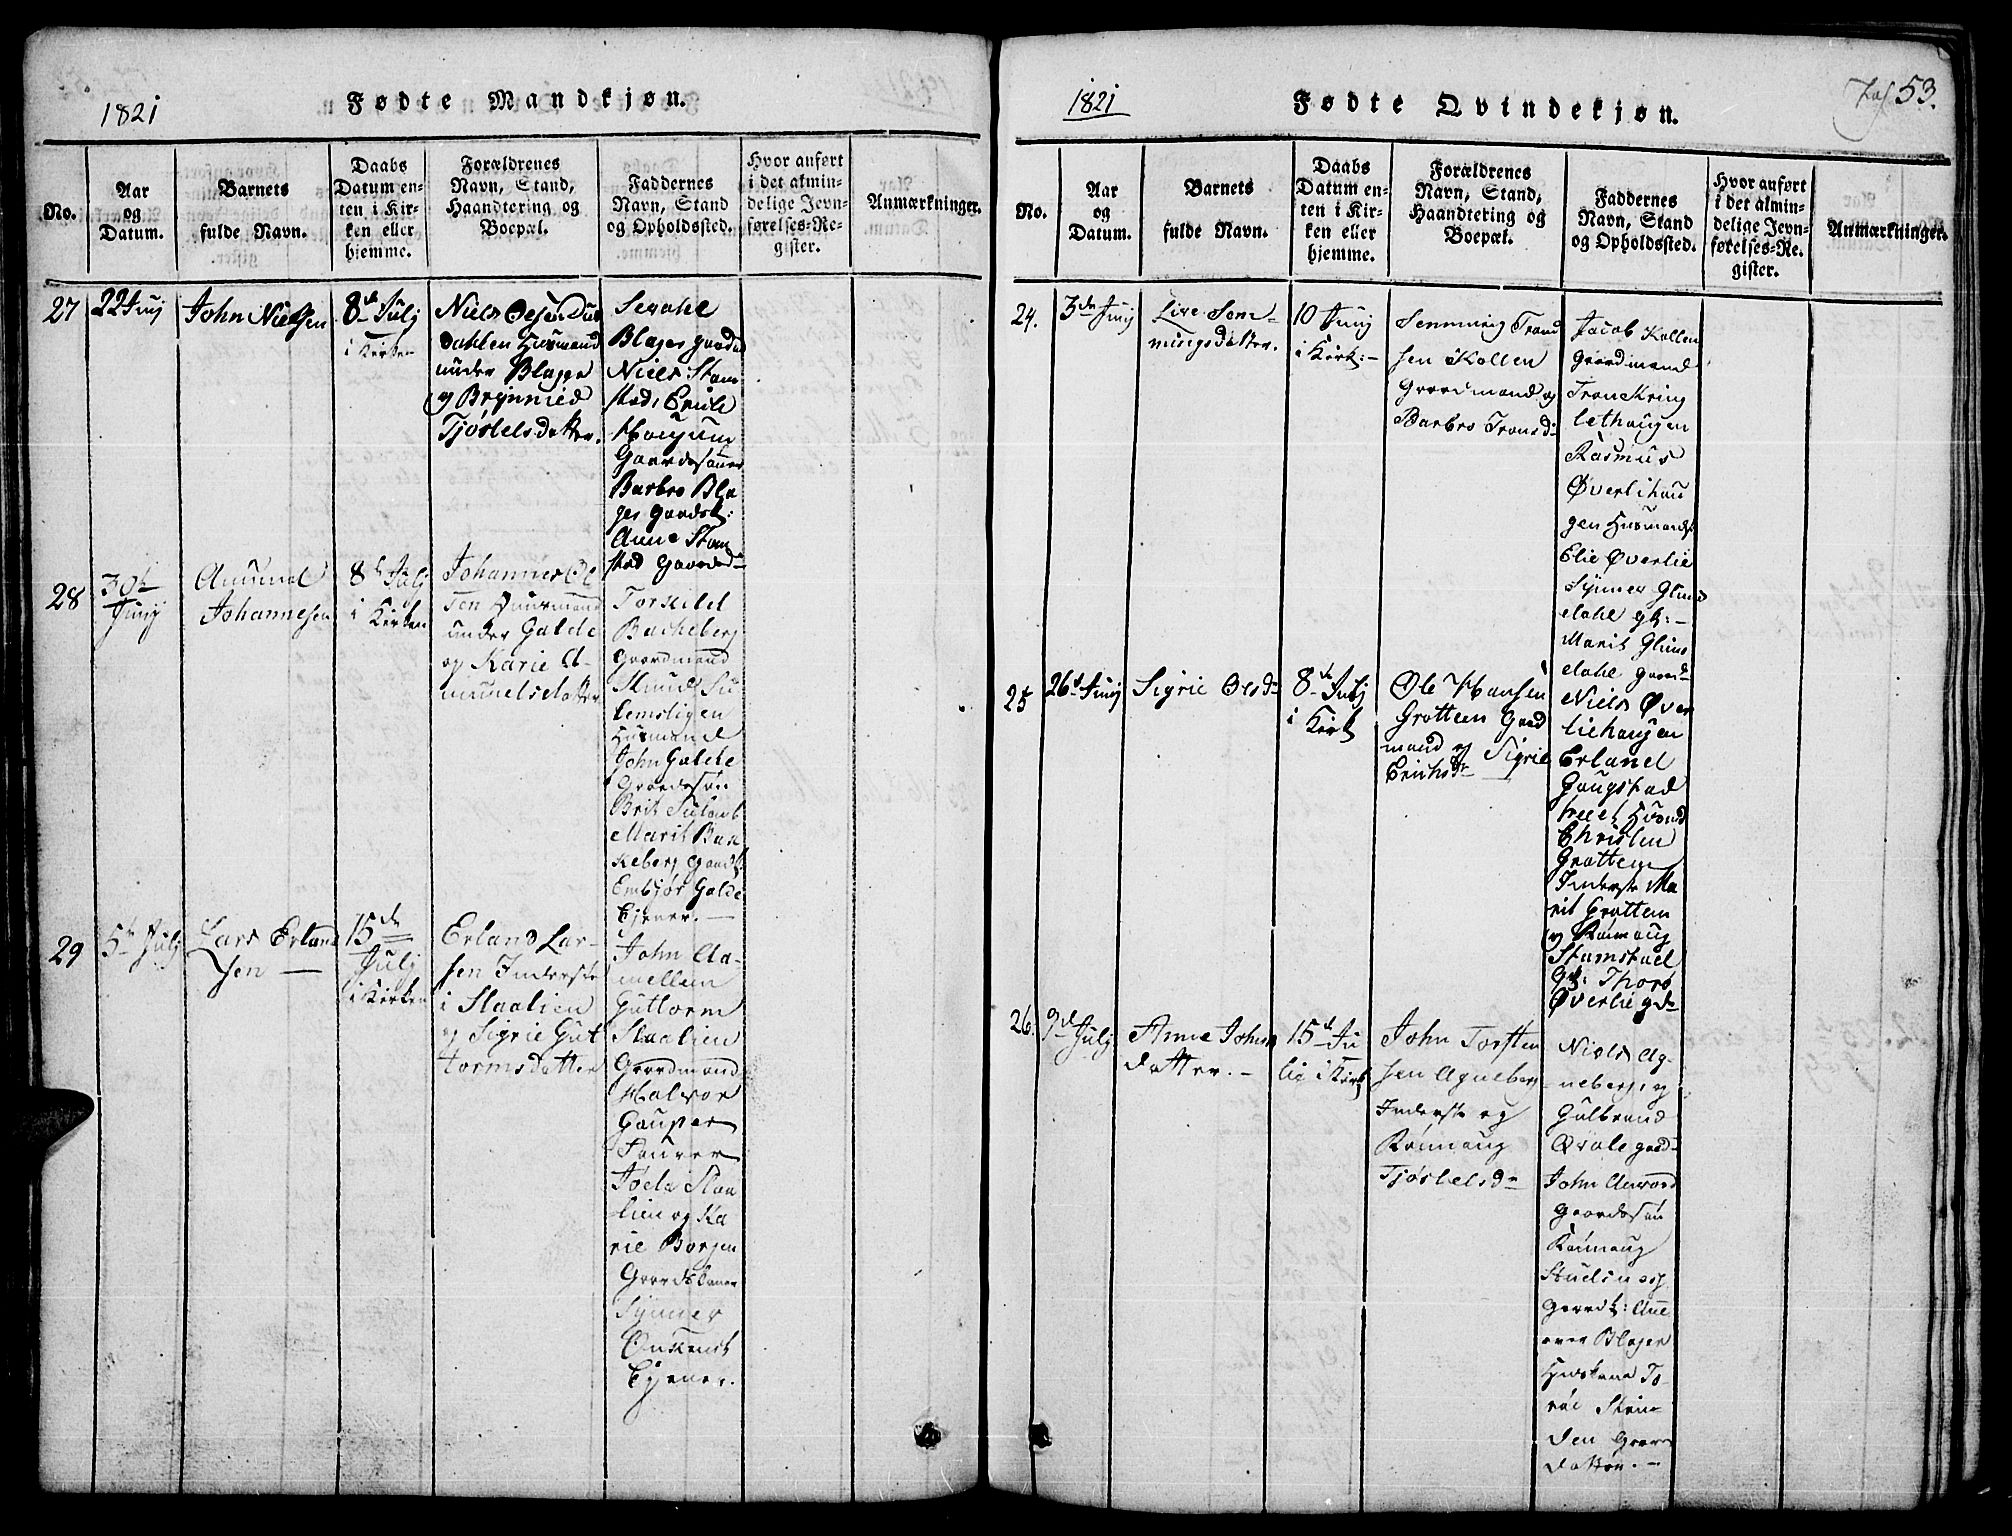 1821
Fødte Mandkjøn.
No.
Aar
og
Datum.
Barnets
fulde Navn.
Daabs
Datum en-
ten i Kir-
ken eller
hjemme.
Forældrenes
Navn, Stand,
Haandtering og
Boepæl.
Faddernes
Navn, Stand
og Opholdssted.
Hvor anført
i det almin-
delige Jevn-
førelses-Re-
gister.
Anmærkninger.
27
22 Junj
John Nielsen
8de Julj
i Kirken
Niels
dahlen Husmand
under Blager
og Brynnild
Tjøstelsdatter.
Blager
Niels Stam
stad,
Barbro Bla
ger Gaardsk:
Anne Stam
stad
28
30te
Junj
Amund
Johannesen
8de Julj
i Kirken
Johannes Ol
sen Huusmand
under Galde
og Karie A-
mundsdatter
Torkild
Bacheberg
Gaardmand
Knud Su
lemsligen
Husmand
John Galde
Gaardesøn
Brit
Marit Bac
keberg Gaardsk
Embjør Galde
Tjener. —
29
5te Julj
Lars Erland
sen —
15de
Julj
i Kirken
Erland Lar-
sen Inderste
i Staalien
og Sigrie Gut
tormsdatter
John Aa-
mellem
Guttorm
Staalien
Gaardmænd
Halvor
Gauper
Joda Staa
lien og Ka
rie Borgen
Gaardskoner
Synner
Tjener.
1821
Fødte Qvindekjøn.
53.
No.
Aar
og
Datum.
Barnets
fulde Navn.
Daabs
Datum en-
ten i Kir-
ken eller
hjemme.
Forældrenes
Navn, Stand,
Haandtering og
Boepæl.
Faddernes
Navn, Stand
og Opholdssted.
Hvor anført
i det almin-
delige Jevn-
førelses-Re-
gister.
Anmærkninger.
24.
3de Junj
Live Sem-
mingsdatter.
10 Junj
i Kirk: —
Semming Trond
sen Kollen
Gaardmand og
Barbro Tronsd
Jacob Kollen
Gaardmand
Tron Kring
lethaugen
Rasmus
Øverlihau
gen Husmand
Elie Øverlie
Synner Glims
dahl gk: —
Marit Glims
dahl Gaardd
25
26de Junj
Sigrie Olsd
8de Julj
i Kirk
Ole Hansen
Grottem Gaard
mand og Sigrie
Erichsd
Niels Øver
liehaugen
Erland
Gaugstad
Christen
Grottem
Inderste Ma
rit Grottem
og Rønnaug
Stamstad
Gk: Thore
Øverlie gd
26.
9de Julj
Anne Johns
datter. —
15de Ju
lii i Kirk
John Torsten
sen Agneberg
Inderste og
Rønnaug
Tjøstelsd
Niels Ag-
neberg, og
Gulbrand
Qvale
John
Gaardesøn
Rønnaug
Gaardk:
Blager
Huskone To-
den Gaard
datter. —